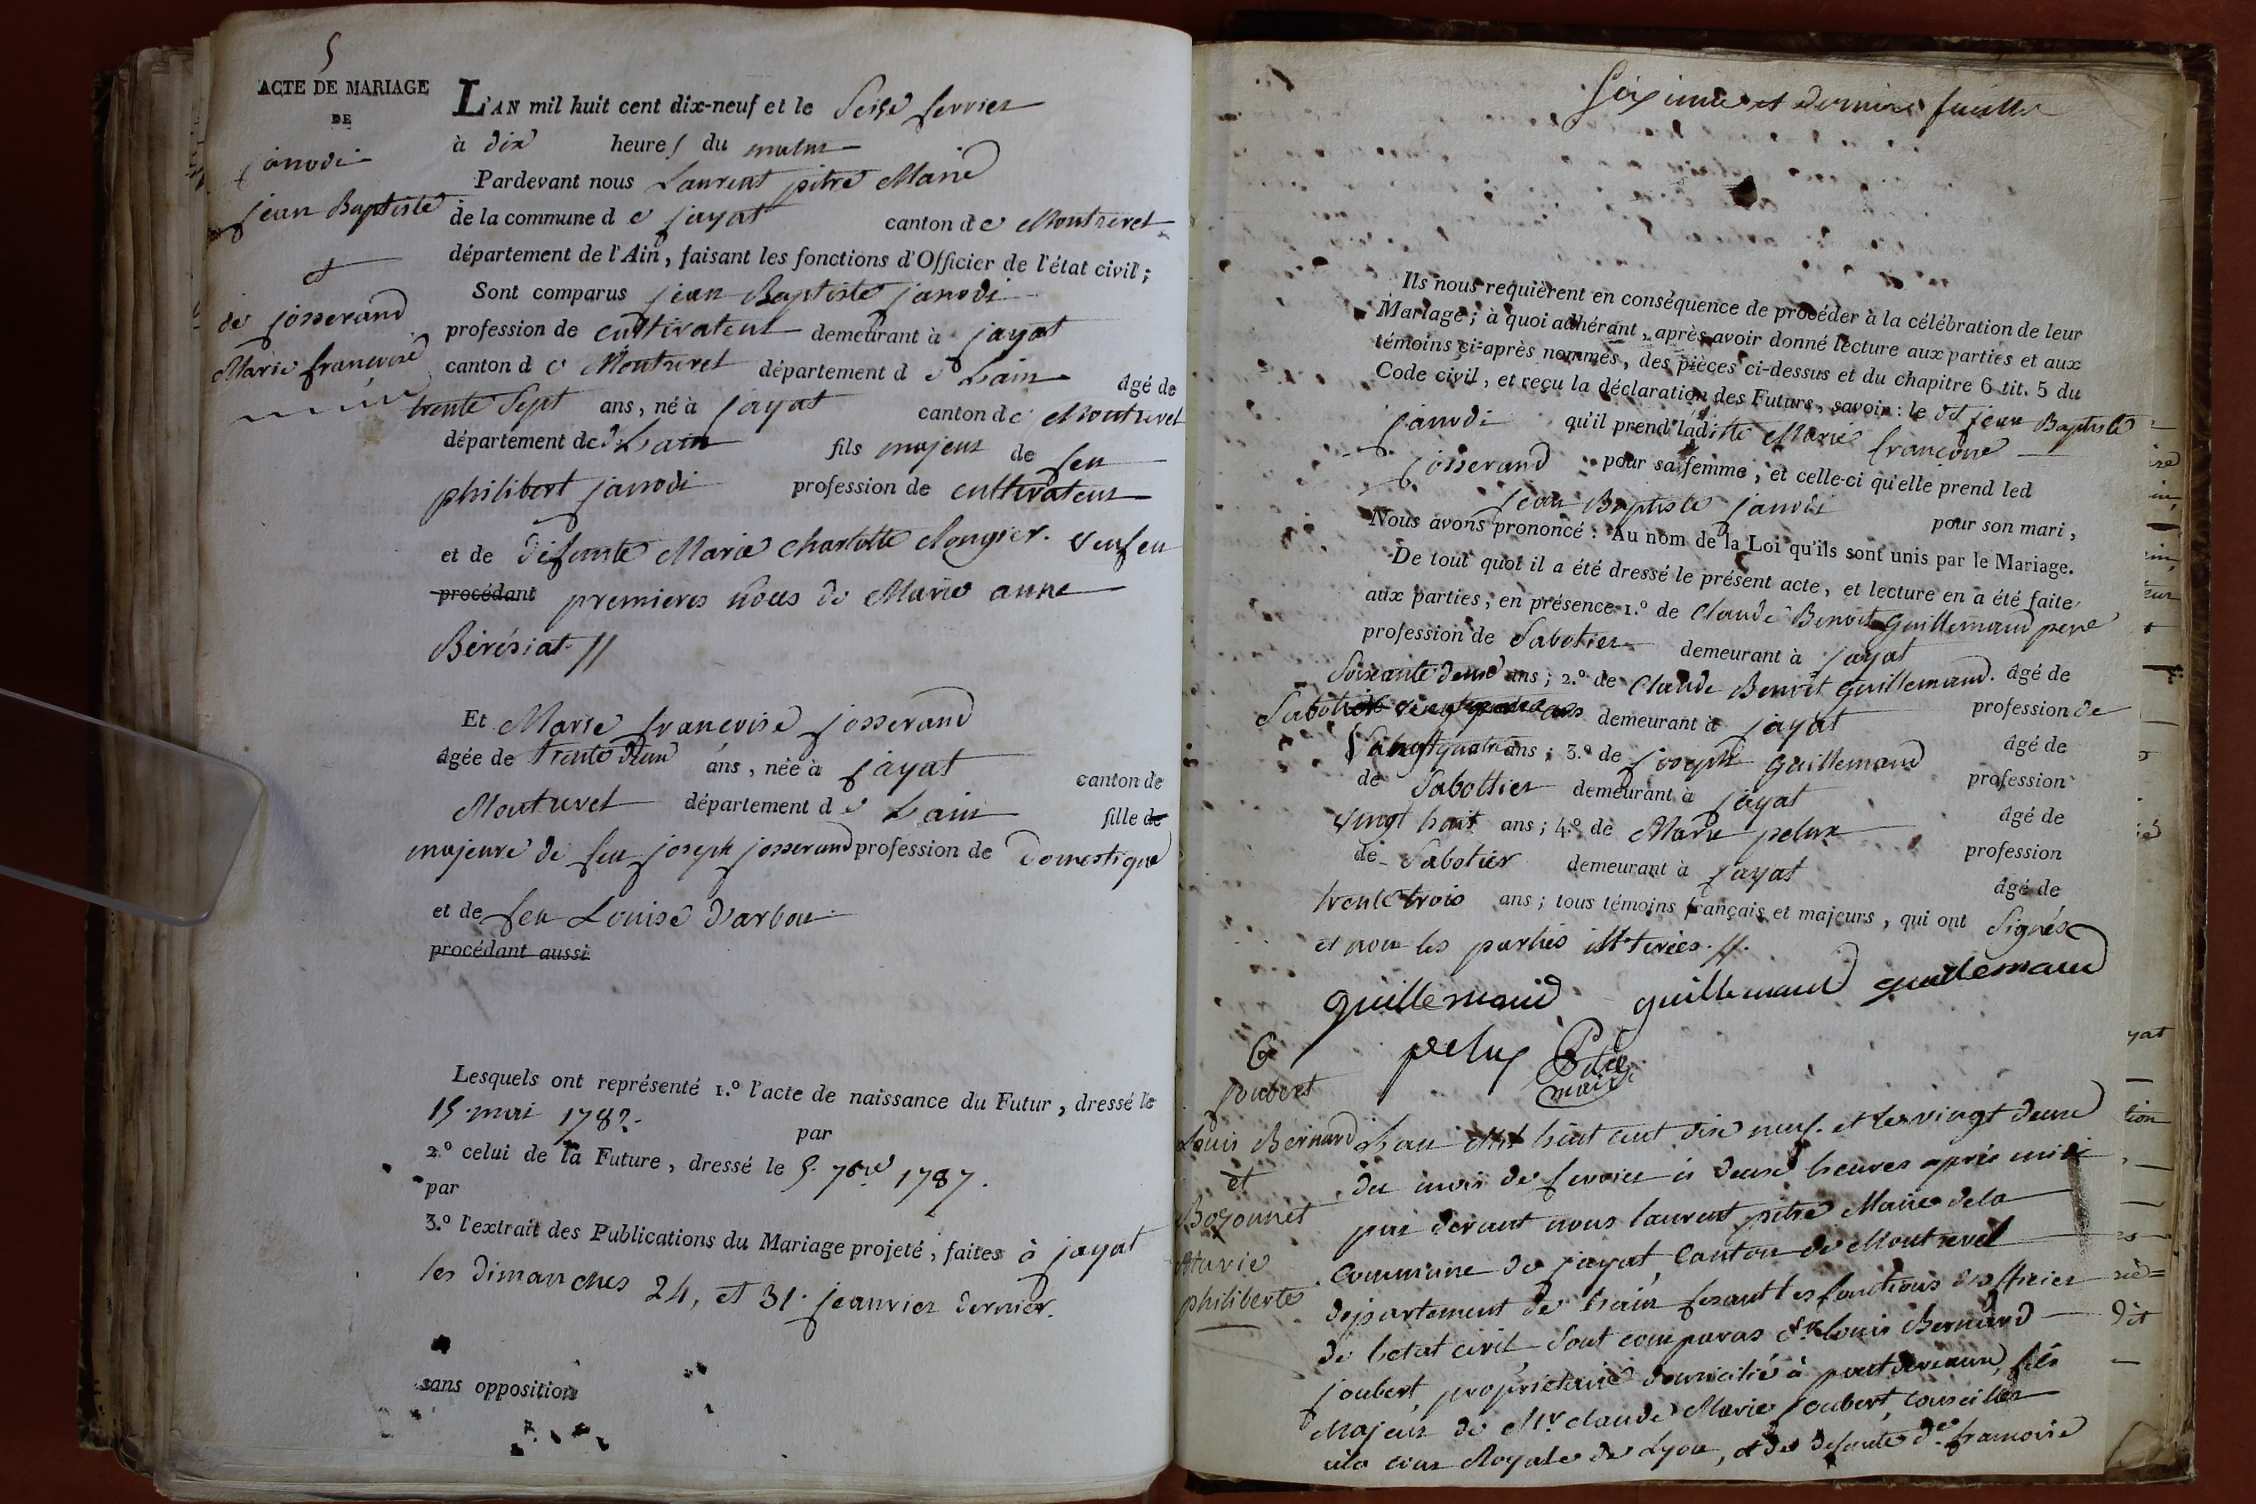 5
ACTE DE MARIAGE
DE
janodi
jean Baptiste
et
de josserand
Marie françoise
L'AN mil huit cent dix-neuf et le Seise fevrier
à dix heures du matin
Pardevant nous Laurent pitre Maire
de la commune de jayat canton de Montrevel
département de l'Ain, faisant les fonctions d'Officier de l'état civil;
Sont comparus jean Baptiste janodi
profession de cultivateur demeurant à jayat
canton de Montrevel département de Lain âgé de
trente Sept ans, né à jayat canton de Montrevel
département de Lain fils majeur de feu
philibert janodi profession de cultivateur
et de défunte Marie Charlotte veuf en
procédant premieres noces de Marie anne
Bérésiat //
Et Marie françoise josserand
âgée de trente deux ans, née à jayat canton de
Montrevel département de Lain fille de
majeure de feu joseph josserand profession de domestique
et de feu Louise Darbou
procédant aussi
Lesquels ont représenté 1.º l'acte de naissance du Futur, dressé le
15 mai 1782. par
2.º celui de la Future, dressé le 5. 7bre 1787.
par
3.º l'extrait des Publications du Mariage projeté, faites à jayat
les dimanches 24, et 31. jeanvier dernier.
sans opposition
Sixieme et derniere feuille
Ils nous requièrent en conséquence de procéder à la célébration de leur
Mariage; à quoi adhérant, après avoir donné lecture aux parties et aux
témoins ci-après nommés, des pièces ci-dessus et du chapitre 6 tit. 5 du
Code civil, et reçu la déclaration des Futurs, savoir: le dit jean Baptiste
janodi qu'il prend ladiste Marie françoise
josserand pour sa femme; et celle-ci qu'elle prend led
jean Baptiste janodi pour son mari,
Nous avons prononcé: Au nom de la Loi qu'ils sont unis par le Mariage.
De tout quoi il a été dressé le présent acte, et lecture en a été faite
aux parties, en présence 1.º de Claude Benoit Guillemaud pere
profession de Sabotier demeurant à jayat âgé de
Soixante deux ans; 2.º de Claude Benoit Guillemaud. profession de
Sabotier demeurant à jayat âgé de
vingt quatre ans; 3.º de joseph Guillemaud profession
de Sabottier demeurant à jayat âgé de
vingt huit ans; 4.º de Marie pelux profession
de Sabotier demeurant à jayat âgé de
trente trois ans; tous témoins français et majeurs, qui ont Signés
et non les parties illiterées. //.
guillemaud guillemaud guillemaud
pelux Pitre
maire
6
joubert
Louis Bernard
et
Bozonnet
Marie
philiberte
Lan Mil huit cent dix neuf. et le vingt deux
du mois de fevrier à deux heures après midi
par devant nous laurent pitre Maire de la
Commune de jayat, Canton de Montrevel
departement de Lain fesant les fonctions dofficier
de letat civil Sont comparus Sr. louis Bernard
joubert, proprietaire domicilié à pontdevaux, fils
Majeur de Mr claude Marie joubert, conseiller
ala cour Royale de Lyon, et de defunte de. francoise